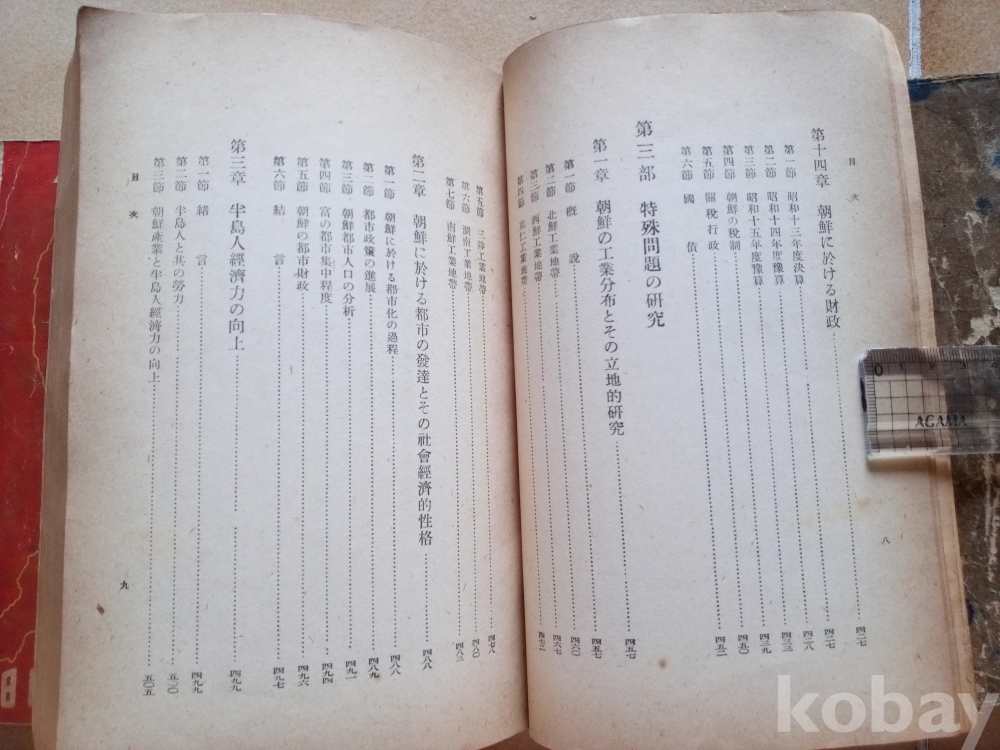 目次
第十四章 朝鮮に於ける財政 四二七
第一節 昭和十三年度決算 四二七
第二節 昭和十四年度豫算 四二八
第三節 昭和十五年度豫算 四三三
第四節 朝鮮の税制 四三九
第五節 關税行政 四五〇
第六節 國債 四五二
第三部 特殊問題の研究 四五七
第一章 朝鮮の工業分布とその立地的研究 四五七
第一節 概説 四六〇
第二節 北鮮工業地帶 四六七
第三節 西鮮工業地帶
第四節 京仁工業地帶
八
第五節 三陟工業地帶 四七八
第六節 湖南工業地帶 四八〇
第七節 南鮮工業地帶 四八二
第二章 朝鮮に於ける都市の發達とその社會經濟的性格 四八八
第一節 朝鮮に於ける都市化の過程 四八八
第二節 都市政策の進展 四八九
第三節 朝鮮都市人口の分析 四九一
第四節 富の都市集中程度 四九四
第五節 朝鮮の都市財政 四九六
第六節 結言 四九七
第三章 半島人經濟力の向上 四九九
第一節 緒言 四九九
第二節 半島人と其の勞力 五〇〇
第三節 朝鮮産業と半島人經濟力の向上 五〇五
目次
九
0 1 2 3 4
AGAMA
kobay